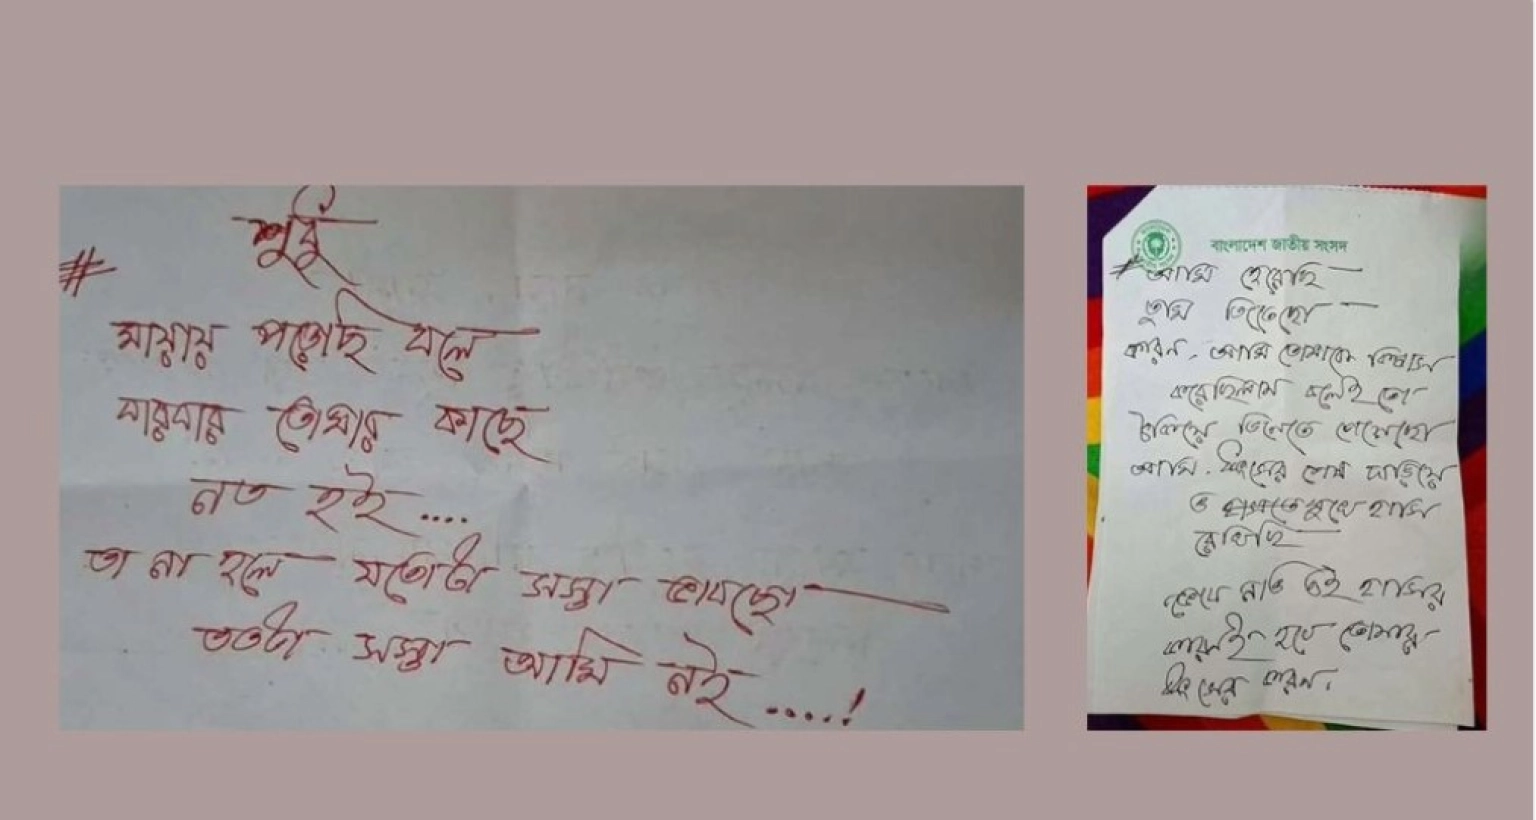 #
মায়ায় পড়েছি বলে
বারবার তোমার কাছে
নত হই....
তা না হলে যতোটা সস্তা ভাবছো
ততটা সস্তা আমি নই.....!
বাংলাদেশ জাতীয় সংসদ
# আমি হেরেছি
তুমি জিতেছো
কারন, আমি তোমাকে বিশ্বাস
করেছিলাম বলেই তো
ঠকিয়ে জিততে পেরেছো
আমি ধ্বংসের শেষ দাড়িয়ে
ও মুখে হাসি
রেখেছি
নাও এই হাসির
কারনই হবে তোমার
ধ্বংসের কারন।